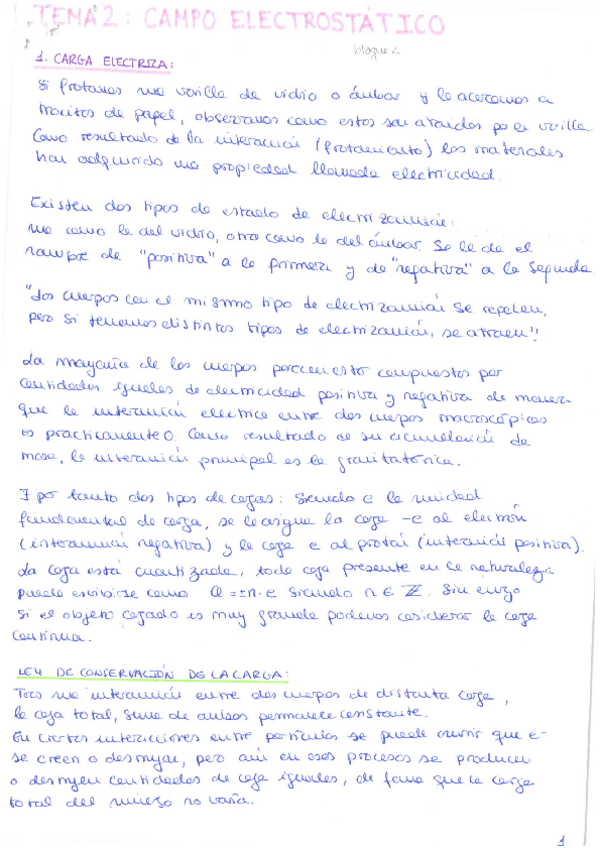 TEMA 2: CAMPO ELECTROSTÁTICO
bloque 2
1. CARGA ELECTRIZA:
Si frotamos una varilla de vidrio o ámbar y le acercamos a
trocitos de papel, observamos como estos son atraidos por la varilla
Como resultado de la interacción (frotamiento) los materiales
han adquirido una propiedad llamada electricidad.
Existen dos tipos de estado de electrización:
una como la del vidrio, otra como la del ámbar. Se le da el
nombre de "positiva" a la primera y de "negativa" a la segunda
"Dos cuerpos con el mismo tipo de electrización se repelen,
pero si tenemos distintos tipos de electrización, se atraen"!
La mayoría de los cuerpos parecen estar compuestos por
cantidades iguales de electricidad positiva y negativa de manera
que la interacción eléctrica entre dos cuerpos macroscópicos
es practicamente 0. Como resultado de su acumulación de
masa, la interacción principal es la gravitatoria.
∃ por tanto dos tipos de cargas: Siendo e la unidad
fundamental de carga, se le asigna la carga -e al electrón
(interacción negativa) y la carga e al protón (interacción positiva).
La carga está cuantizada, toda carga presente en la naturaleza
puede escribirse como Q = ±n·e siendo n ∈ ℤ. Sin embargo
si el objeto cargado es muy grande podemos considerar la carga
continua.
LEY DE CONSERVACIÓN DE LA CARGA:
Tras una interacción entre dos cuerpos de distinta carga,
la carga total, suma de ambos permanece constante.
En ciertas interacciones entre partículas se puede ocurrir que e-
se creen o destruyan, pero aún en esos procesos se producen
o destruyen cantidades de carga iguales, de forma que la carga
total del universo no varía.
1